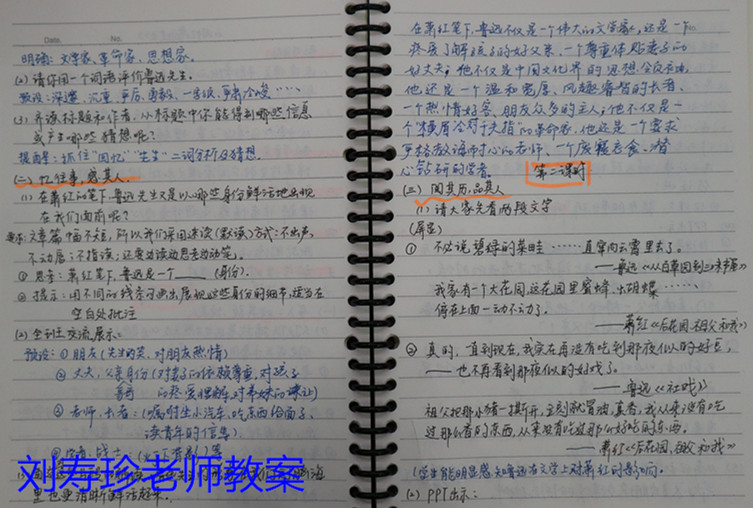 明确：文学家、革命家、思想家。
(2) 请你用一个词语评价鲁迅先生。
预设：深邃、沉重、尊厉、勇敢、一身侠、横眉冷峻……
(3) 齐读标题和作者，小标题中你能得到哪些信息
或产生哪些猜想呢？
提醒：抓住“回忆”“先生”二词分析及猜想。
(二) 忆往事，感其人
(1) 在萧红的笔下，鲁迅先生又是以哪些身份鲜活地出现
在我们面前呢？
要求：文章篇幅不短，所以我们采用速读(默读)方式：不出声，
不动唇；不指读；还要动读动思去动笔。
① 思考：萧红笔下，鲁迅是一个____(身份)。
② 提示：用不同的线条勾画出展现这些身份的细节，该当在
空白处批注
(2) 全班交流，展示：
预设：① 朋友(先生的笑，对朋友热情)
② 丈夫，父亲身份(对妻子的体贴尊重，对孩子
的疼爱理解，对弟妹的谦让)
③ 老师，长者：(嘱咐坐小汽车，吃东西给面子、
读青年的信等)
里也更清晰鲜活起来。
刘寿珍老师教案
在萧红笔下，鲁迅不仅是一个伟大的文学家，还是一个
疼爱了解孩子的好父亲、一个尊重体贴妻子的
好丈夫；他不仅是中国文化界的思想
他还是一个温和宽厚、风趣睿智的长者、
一个热情好客、朋友众多的主人；他不仅是一
个横眉冷对千夫指的革命家，他还是一个要求
严格教诲耐心的老师、一个废寝忘食、潜
心钻研的学者。
第二课时
(三) 阅其历，品其人
(1) 请大家先看两段文字
(屏显)
① 不必说碧绿的菜畦……直窜向云霄里去了。
——鲁迅《从百草园到三味书屋》
我家有一个大花园，这花园里蜜蜂、出胡蝶……，
停在上面一动不动了。
——萧红《后花园.祖父和我》
② 真的，直到现在，我实在再没有吃到那夜似的好豆，
——也不再看到那夜似的好戏了。
——鲁迅《社戏》
祖父把那小猪一撕开，立刻就冒油，真香，我从来没有吃
过那么香的东西，从来没有吃过那么好吃的东西。
——萧红《后花园、祖父和我》
(学生能明显感知鲁迅在文学上对萧红的影响。
(2) PPT出示：